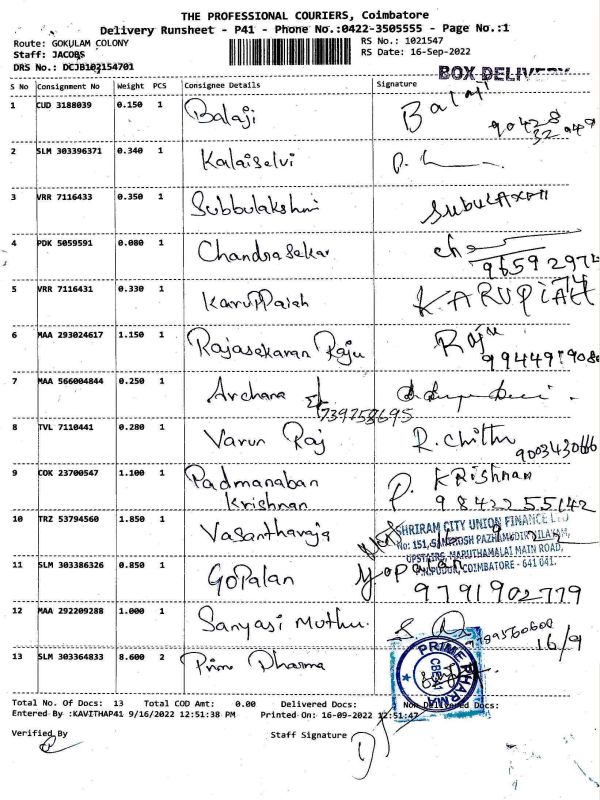 THE PROFESSIONAL COURIERS, Coimbatore
Delivery Runsheet - P41 - Phone No.:0422-3505555 - Page No.:1
Route: GOKULAM COLONY
Staff: JACOBS
DRS No.: DCJB102154701
RS No.: 1021547
RS Date: 16-Sep-2022
BOX DELIVERY
S No Consignment No Weight PCS Consignee Details Signature
1 CUD 3188039 0.150 1 Balaji Balaji
90428
32949
2 SLM 303396371 0.340 1 Kalaiselvi P.
3 VRR 7116433 0.350 1 Subbulakshmi
4 PDK 5059591 0.080 1 Chandrasekar
5 VRR 7116431 0.330 1 Karuppaiah KARUPIAH
6 MAA 293024617 1.150 1 Rajasekaran Raju Raju
7 MAA 566004844 0.250 1 Archana
8 TVL 7110441 0.280 1 Varun Raj R. Chithu
9003430666
9 COK 23700547 1.100 1 Padmanaban P. KRishnan
Krishnan 9842255142
10 TRZ 53794560 1.850 1 Vasantharaja
SHRIRAM CITY UNION FINANCE LTD
No: 151, SANTHOSH PAZHAMUDIR NILAYAM,
UPSTAIRS, MARUTHAMALAI MAIN ROAD,
P.N.PUDUR, COIMBATORE - 641 041.
11 SLM 303386326 0.850 1 Gopalan Gopalan
9791902779
12 MAA 292209288 1.000 1 Sanyasi Muthu.
16/9
13 SLM 303364833 8.600 2 Prime Dharma
PRIME PHARMA
Total No. Of Docs: 13 Total COD Amt: 0.00 Delivered Docs: Non Delivered Docs:
Entered By :KAVITHAP41 9/16/2022 12:51:38 PM Printed On: 16-09-2022 12:51:47
Verified By Staff Signature